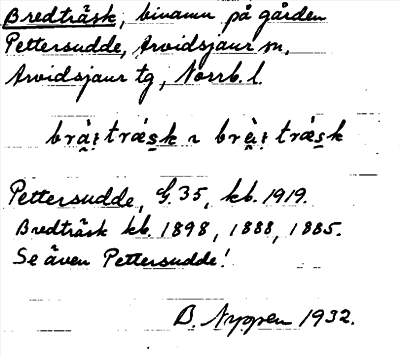 Bredträsk, binamn på gården
Pettersudde, Arvidsjaur sn,
Arvidsjaur tg, Norrb. l.
Pettersudde, G. 35, kb. 1919.
Bredträsk kb. 1898, 1888, 1885.
Se även Pettersudde!
B. 1932.